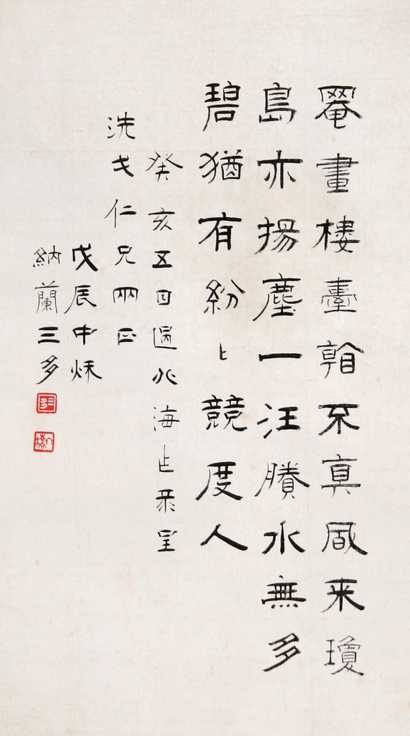 罨畫樓臺看不真風来瓊
島亦揚塵一汪賸水無多
碧猶有紛〻競度人
癸亥五日過北海录呈
洗戈仁兄兩正
戊辰中秌
納蘭三多